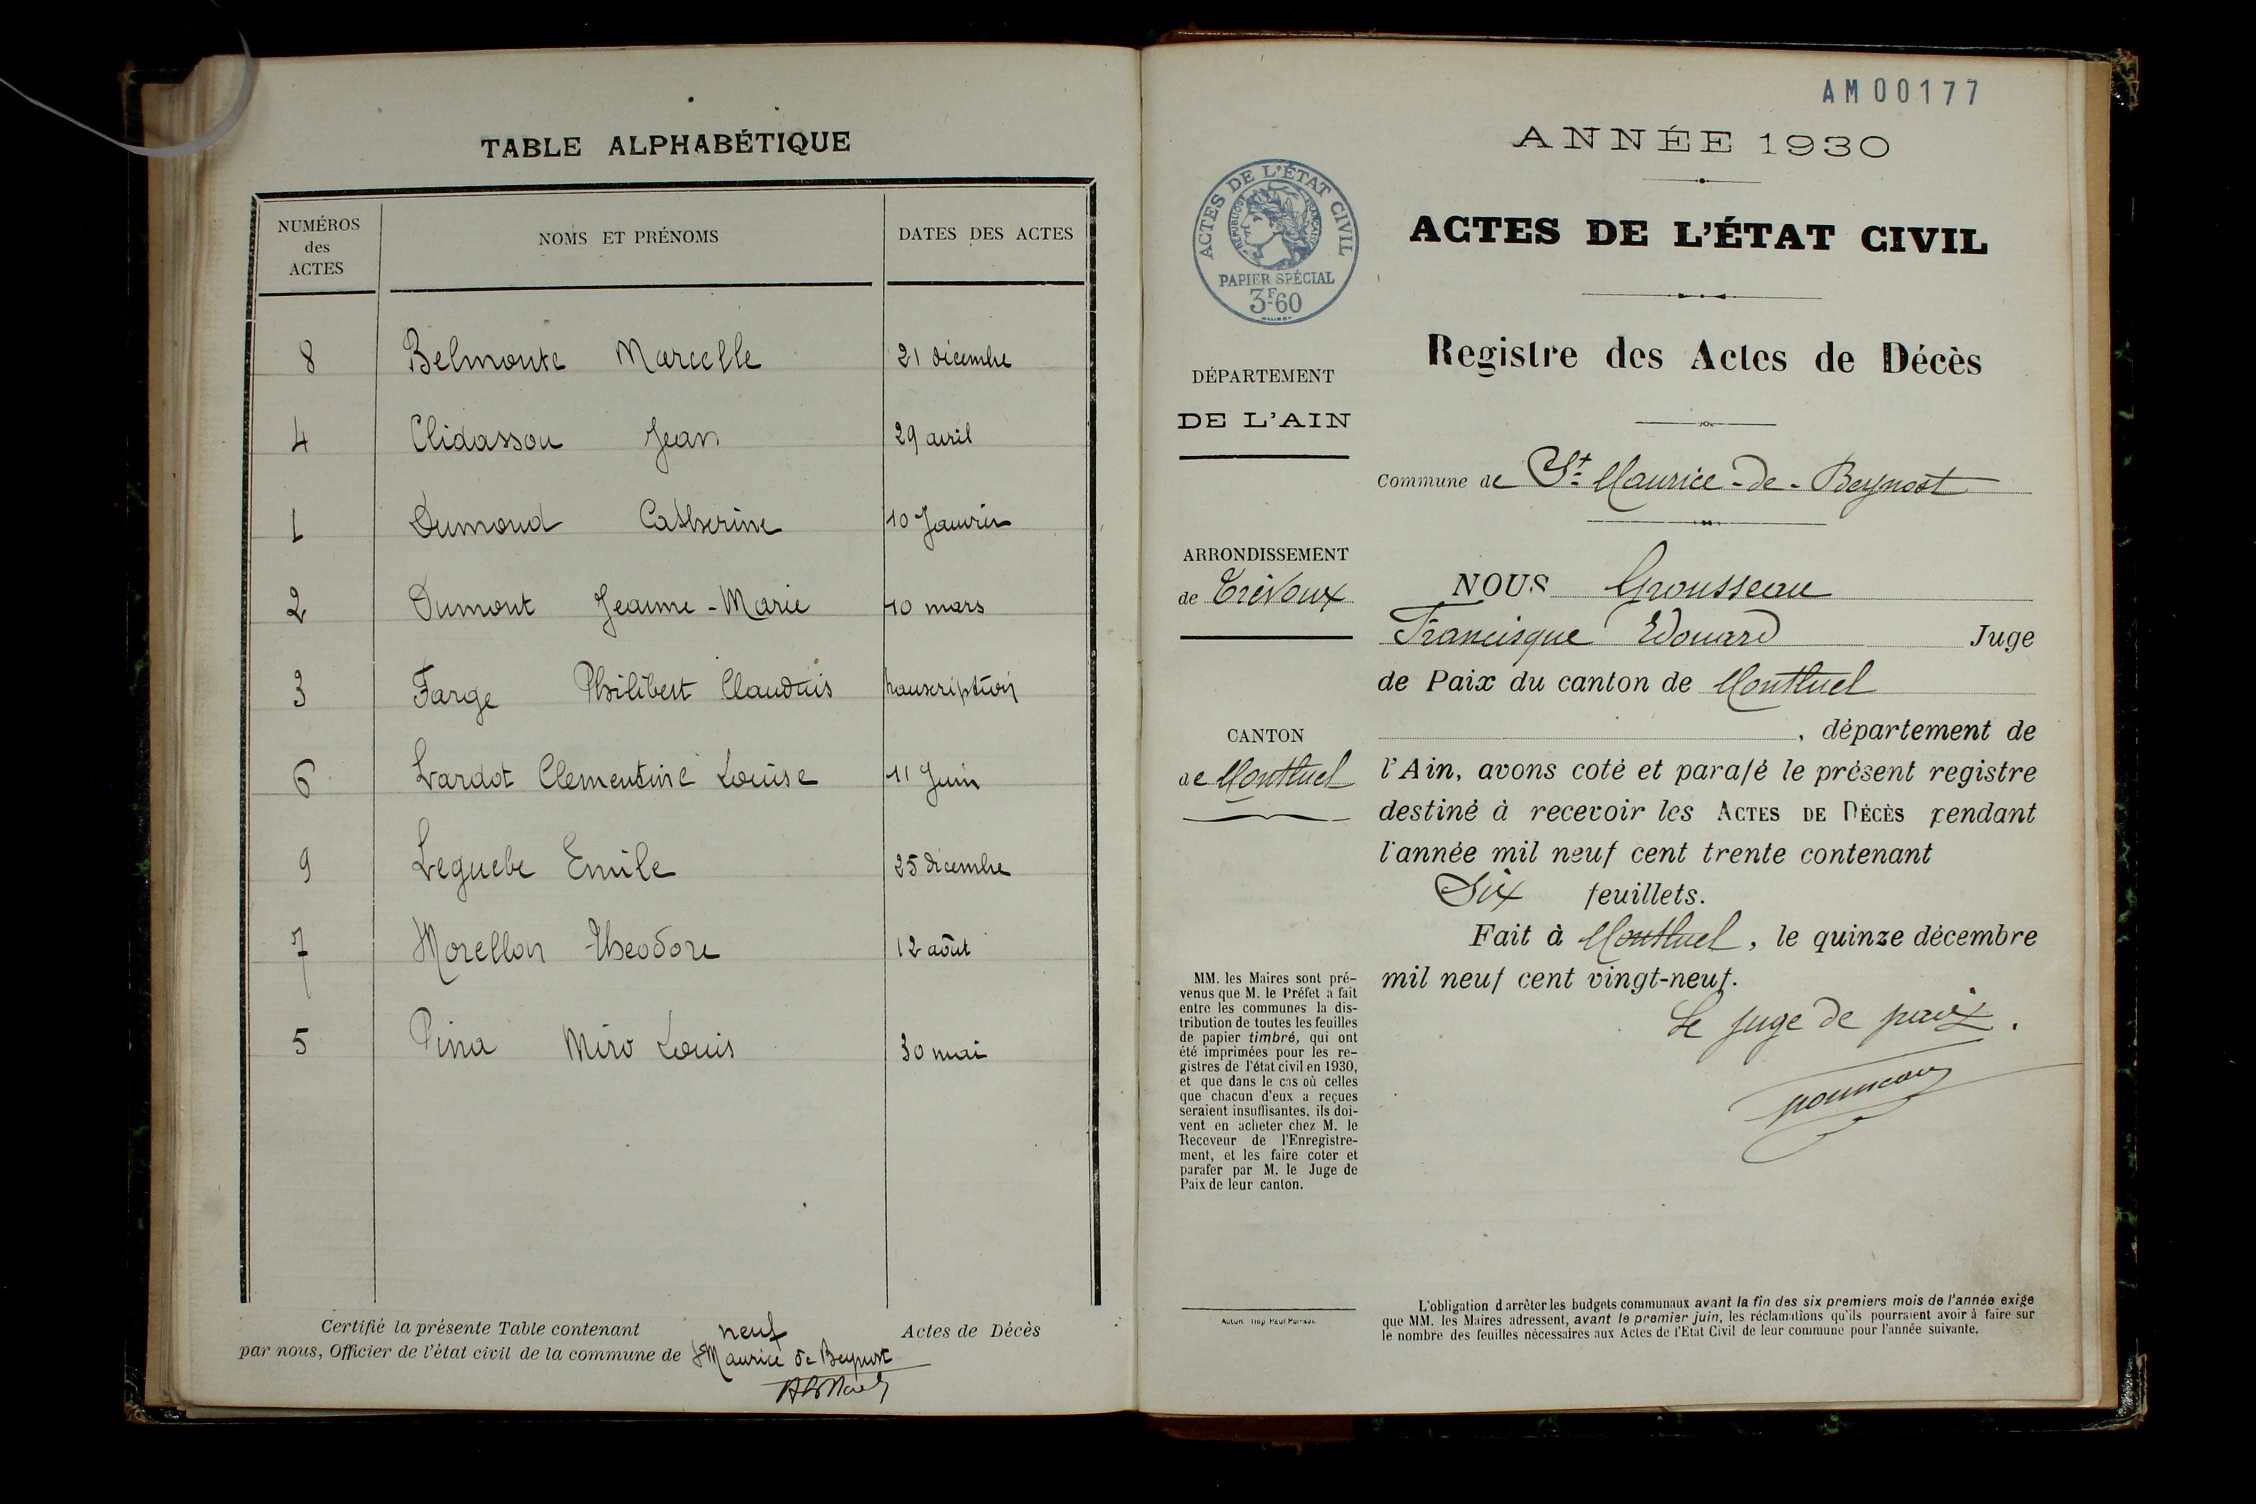 TABLE ALPHABÉTIQUE
NUMÉROS
des
ACTES
NOMS ET PRÉNOMS
DATES DES ACTES
8 Belmonte Marcelle 21 décembre
4 Clidassou Jean 29 avril
1 Dumond Catherine 10 Janvier
2 Dumont Jeanne-Marie 10 mars
3 Farge Philibert Claudius transcription
6 Lardot Clementine Louise 11 Juin
9 Leguebe Emile 25 décembre
7 Morellon Theodore 12 août
5 Pina Miro Louis 30 mai
Certifié la présente Table contenant neuf Actes de Décès
par nous, Officier de l'état civil de la commune de St Maurice de Beynost
AM00177
ANNÉE 1930
ACTES DE L'ÉTAT CIVIL
RÉPUBLIQUE FRANÇAISE
PAPIER SPÉCIAL
3F60
ACTES DE L'ÉTAT CIVIL
Registre des Actes de Décès
DÉPARTEMENT
DE L'AIN
Commune de St Maurice-de-Beynost
ARRONDISSEMENT
de Trévoux
CANTON
de Montluel
NOUS Grousseau
Francisque Edouard Juge
de Paix du canton de Montluel
, département de
l'Ain, avons coté et parafé le présent registre
destiné à recevoir les ACTES DE DÉCÈS pendant
l'année mil neuf cent trente contenant
Six feuillets.
Fait à Montluel, le quinze décembre
mil neuf cent vingt-neuf.
Le juge de paix.
MM. les Maires sont pré-
venus que M. le Préfet a fait
entre les communes la dis-
tribution de toutes les feuilles
de papier timbré, qui ont
été imprimées pour les re-
gistres de l'état civil en 1930,
et que dans le cas où celles
que chacun d'eux a reçues
seraient insuffisantes, ils doi-
vent en acheter chez M. le
Receveur de l'Enregistre-
ment, et les faire coter et
parafer par M. le Juge de
Paix de leur canton.
L'obligation d'arrêter les budgets communaux avant la fin des six premiers mois de l'année exige
que MM. les Maires adressent, avant le premier juin, les réclamations qu'ils pourraient avoir à faire sur
le nombre des feuilles nécessaires aux Actes de l'Etat Civil de leur commune pour l'année suivante.